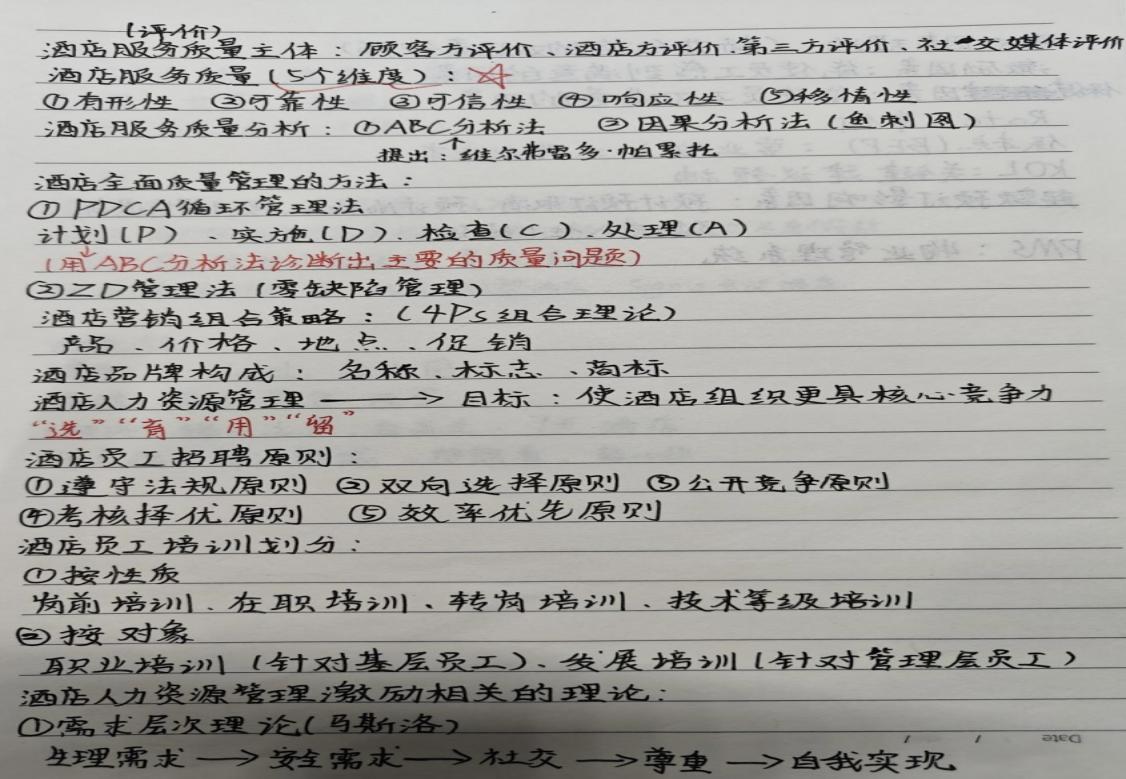 (评价)
酒店服务质量主体：顾客方评价、酒店方评价、第三方评价、社交媒体评价
酒店服务质量(5个维度)：
①有形性 ②可靠性 ③可信性 ④响应性 ⑤移情性
酒店服务质量分析：①ABC分析法 ②因果分析法(鱼刺图)
提出：维尔弗雷多·帕累托
酒店全面质量管理的方法：
①PDCA循环管理法
计划(P)、实施(D)、检查(C)、处理(A)
(用ABC分析法诊断出主要的质量问题)
②ZD管理法(零缺陷管理)
酒店营销组合策略：(4Ps组合理论)
产品、价格、地点、促销
酒店品牌构成：名称、标志、商标
酒店人力资源管理 → 目标：使酒店组织更具核心竞争力
“选”“育”“用”“留”
酒店员工招聘原则：
①遵守法规原则 ②双向选择原则 ③公开竞争原则
④考核择优原则 ⑤效率优先原则
酒店员工培训划分：
①按性质
岗前培训、在职培训、转岗培训、技术等级培训
②按对象
职业培训(针对基层员工)、发展培训(针对管理层员工)
酒店人力资源管理激励相关的理论：
①需求层次理论(马斯洛)
生理需求→安全需求→社交→尊重→自我实现
Date